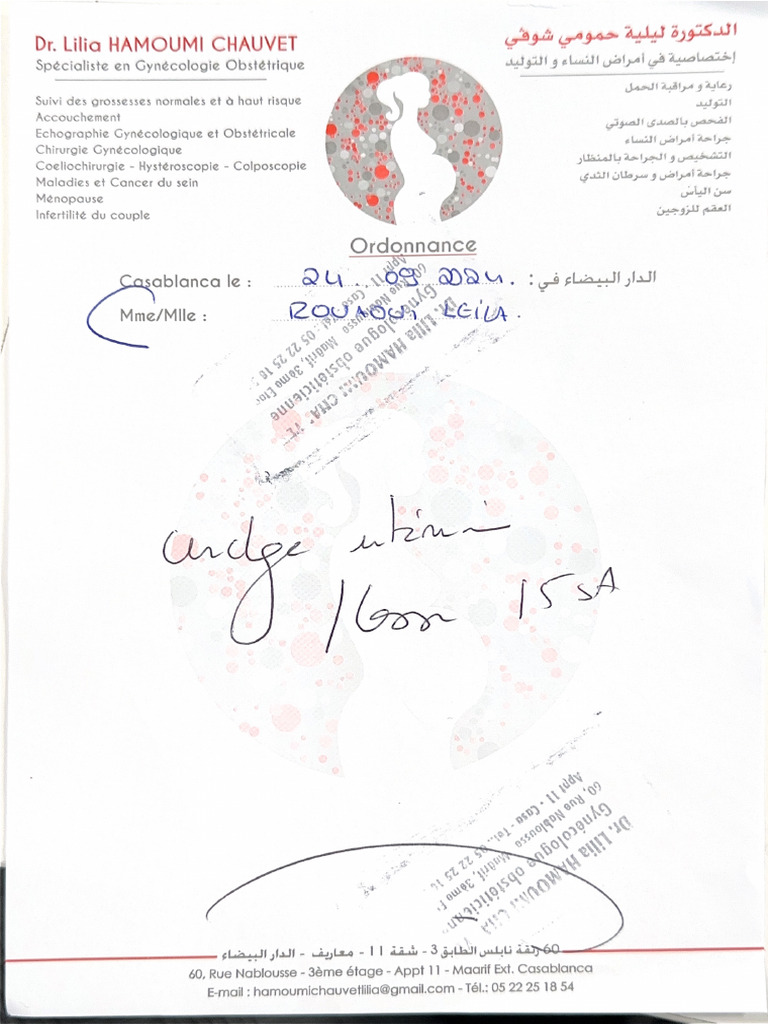 Dr. Lilia HAMOUMI CHAUVET
Spécialiste en Gynécologie Obstétrique
Suivi des grossesses normales et à haut risque
Accouchement
Echographie Gynécologique et Obstétricale
Chirurgie Gynécologique
Coeliochirurgie - Hystéroscopie - Colposcopie
Maladies et Cancer du sein
Ménopause
Infertilité du couple
الدكتورة ليلية حمومي شوفي
إختصاصية في أمراض النساء و التوليد
رعاية و مراقبة الحمل
التوليد
الفحص بالصدى الصوتي
جراحة أمراض النساء
التشخيص و الجراحة بالمنظار
جراحة أمراض و سرطان الثدي
سن اليأس
العقم للزوجين
Ordonnance
Casablanca le : 24 . 09 2024. الدار البيضاء في :
Mme/Mlle : ROUAOUI LEILA.
Dr. Lilia HAMOUMI CHA
Gynécologue obstétricienne
60, Rue Nablousse Maârif, 3ème Eta
Appt 11 - Casa - Tél.: 05 22 25 18
15 SA
Dr. Lilia HAMOUMI CHA
Gynécologue obstétricien
60, Rue Nablousse Maârif, 3ème
Appt 11 - Casa - Tel. 05 22 25 18
60 زنقة نابلس الطابق 3 - شقة 11 - معاريف - الدار البيضاء
60, Rue Nablousse - 3ème étage - Appt 11 - Maarif Ext. Casablanca
E-mail : hamoumichauvetlilia@gmail.com - Tél.: 05 22 25 18 54